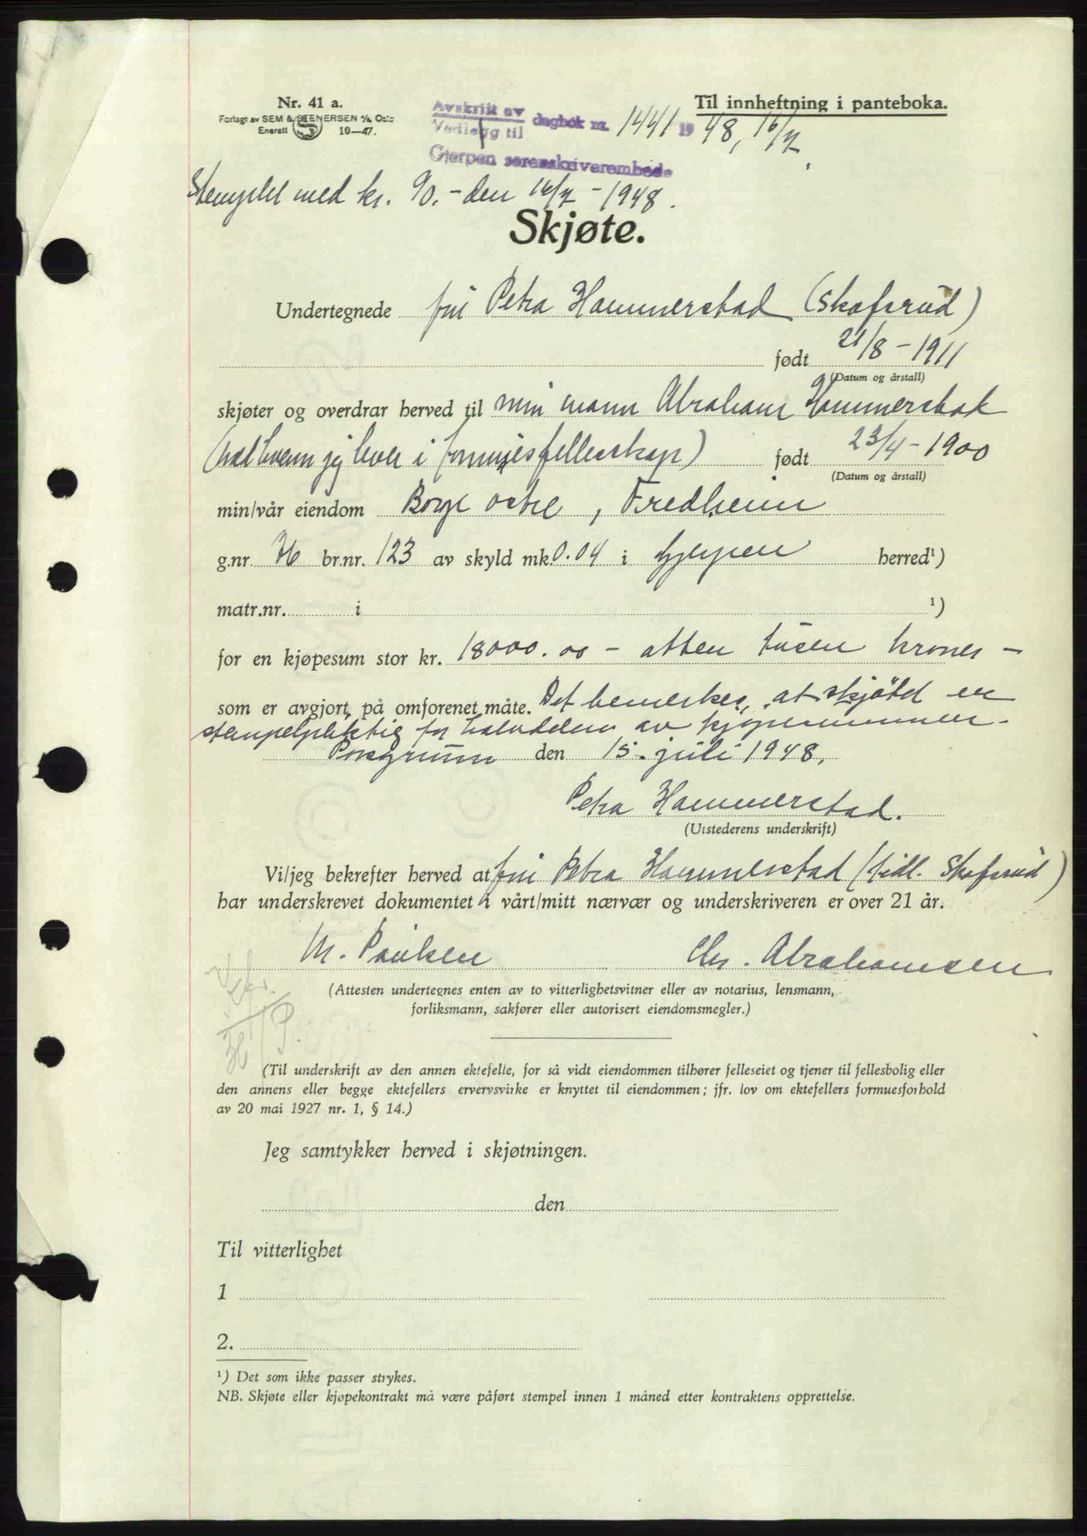 Nr. 41 a.
Forlagt av SEM & STENERSEN A/S, Oslo
Enerett 10—47.
Til innheftning i panteboka.
Avskrift av
Vedlegg til dagbok nr. 1441 1948, 16/7
Gjerpen sorenskriverembede
Stemplet med kr. 90.- den 16/7 - 1948.
Skjøte.
Undertegnede fru Petra Hammerstad (Skofsrud)
født 21/8 - 1911
(Datum og årstall)
skjøter og overdrar herved til min mann Abraham Hammerstad
(med hvem jeg lever i formuesfellesskap) født 23/4 - 1900
(Datum og årstall)
min/vår eiendom Borge østre, Fredheim
g.nr. br.nr. 123 av skyld mk 0.04 i Gjerpen herred¹)
matr.nr. i ¹)
for en kjøpesum stor kr. 18000.00 - atten tusen kroner -
som er avgjort på omforenet måte. Det bemerkes, at skjøtet er
stempelpliktig for halvdelen av kjøpesummen.
Porsgrunn den 15. juli 1948.
Petra Hammerstad.
(Utstederens underskrift)
Vi/jeg bekrefter herved at fru Petra Hammerstad (tidl. Skofsrud)
har underskrevet dokumentet i vårt/mitt nærvær og underskriveren er over 21 år.
M. Paulsen Chr. Abrahamsen
(Attesten undertegnes enten av to vitterlighetsvitner eller av notarius, lensmann,
forliksmann, sakfører eller autorisert eiendomsmegler.)
(Til underskrift av den annen ektefelle, for så vidt eiendommen tilhører felleseiet og tjener til fellesbolig eller
den annens eller begge ektefellers ervervsvirke er knyttet til eiendommen; jfr. lov om ektefellers formuesforhold
av 20 mai 1927 nr. 1, § 14.)
Jeg samtykker herved i skjøtningen.
den
Til vitterlighet
1
2.
¹) Det som ikke passer strykes.
NB. Skjøte eller kjøpekontrakt må være påført stempel innen 1 måned etter kontraktens opprettelse.